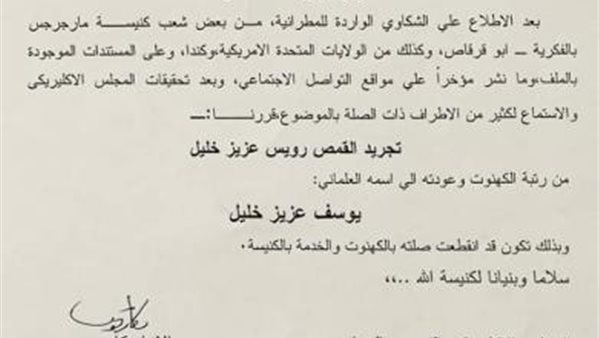 بعد الاطلاع علي الشكاوي الواردة للمطرانية، من بعض شعب كنيسة مارجرجس
بالفكرية – ابو قرقاص، وكذلك من الولايات المتحدة الامريكية،وكندا، وعلى المستندات الموجودة
بالملف،وما نشر مؤخراً علي مواقع التواصل الاجتماعي، وبعد تحقيقات المجلس الاكليريكى
والاستماع لكثير من الاطراف ذات الصلة بالموضوع،قررنــــــا:ــ
تجريد القمص رويس عزيز خليل
من رتبة الكهنوت وعودته الي اسمه العلماني:
يوسف عزيز خليل
وبذلك تكون قد انقطعت صلته بالكهنوت والخدمة بالكنيسة.
سلاما وبنيانا لكنيسة الله ..،،